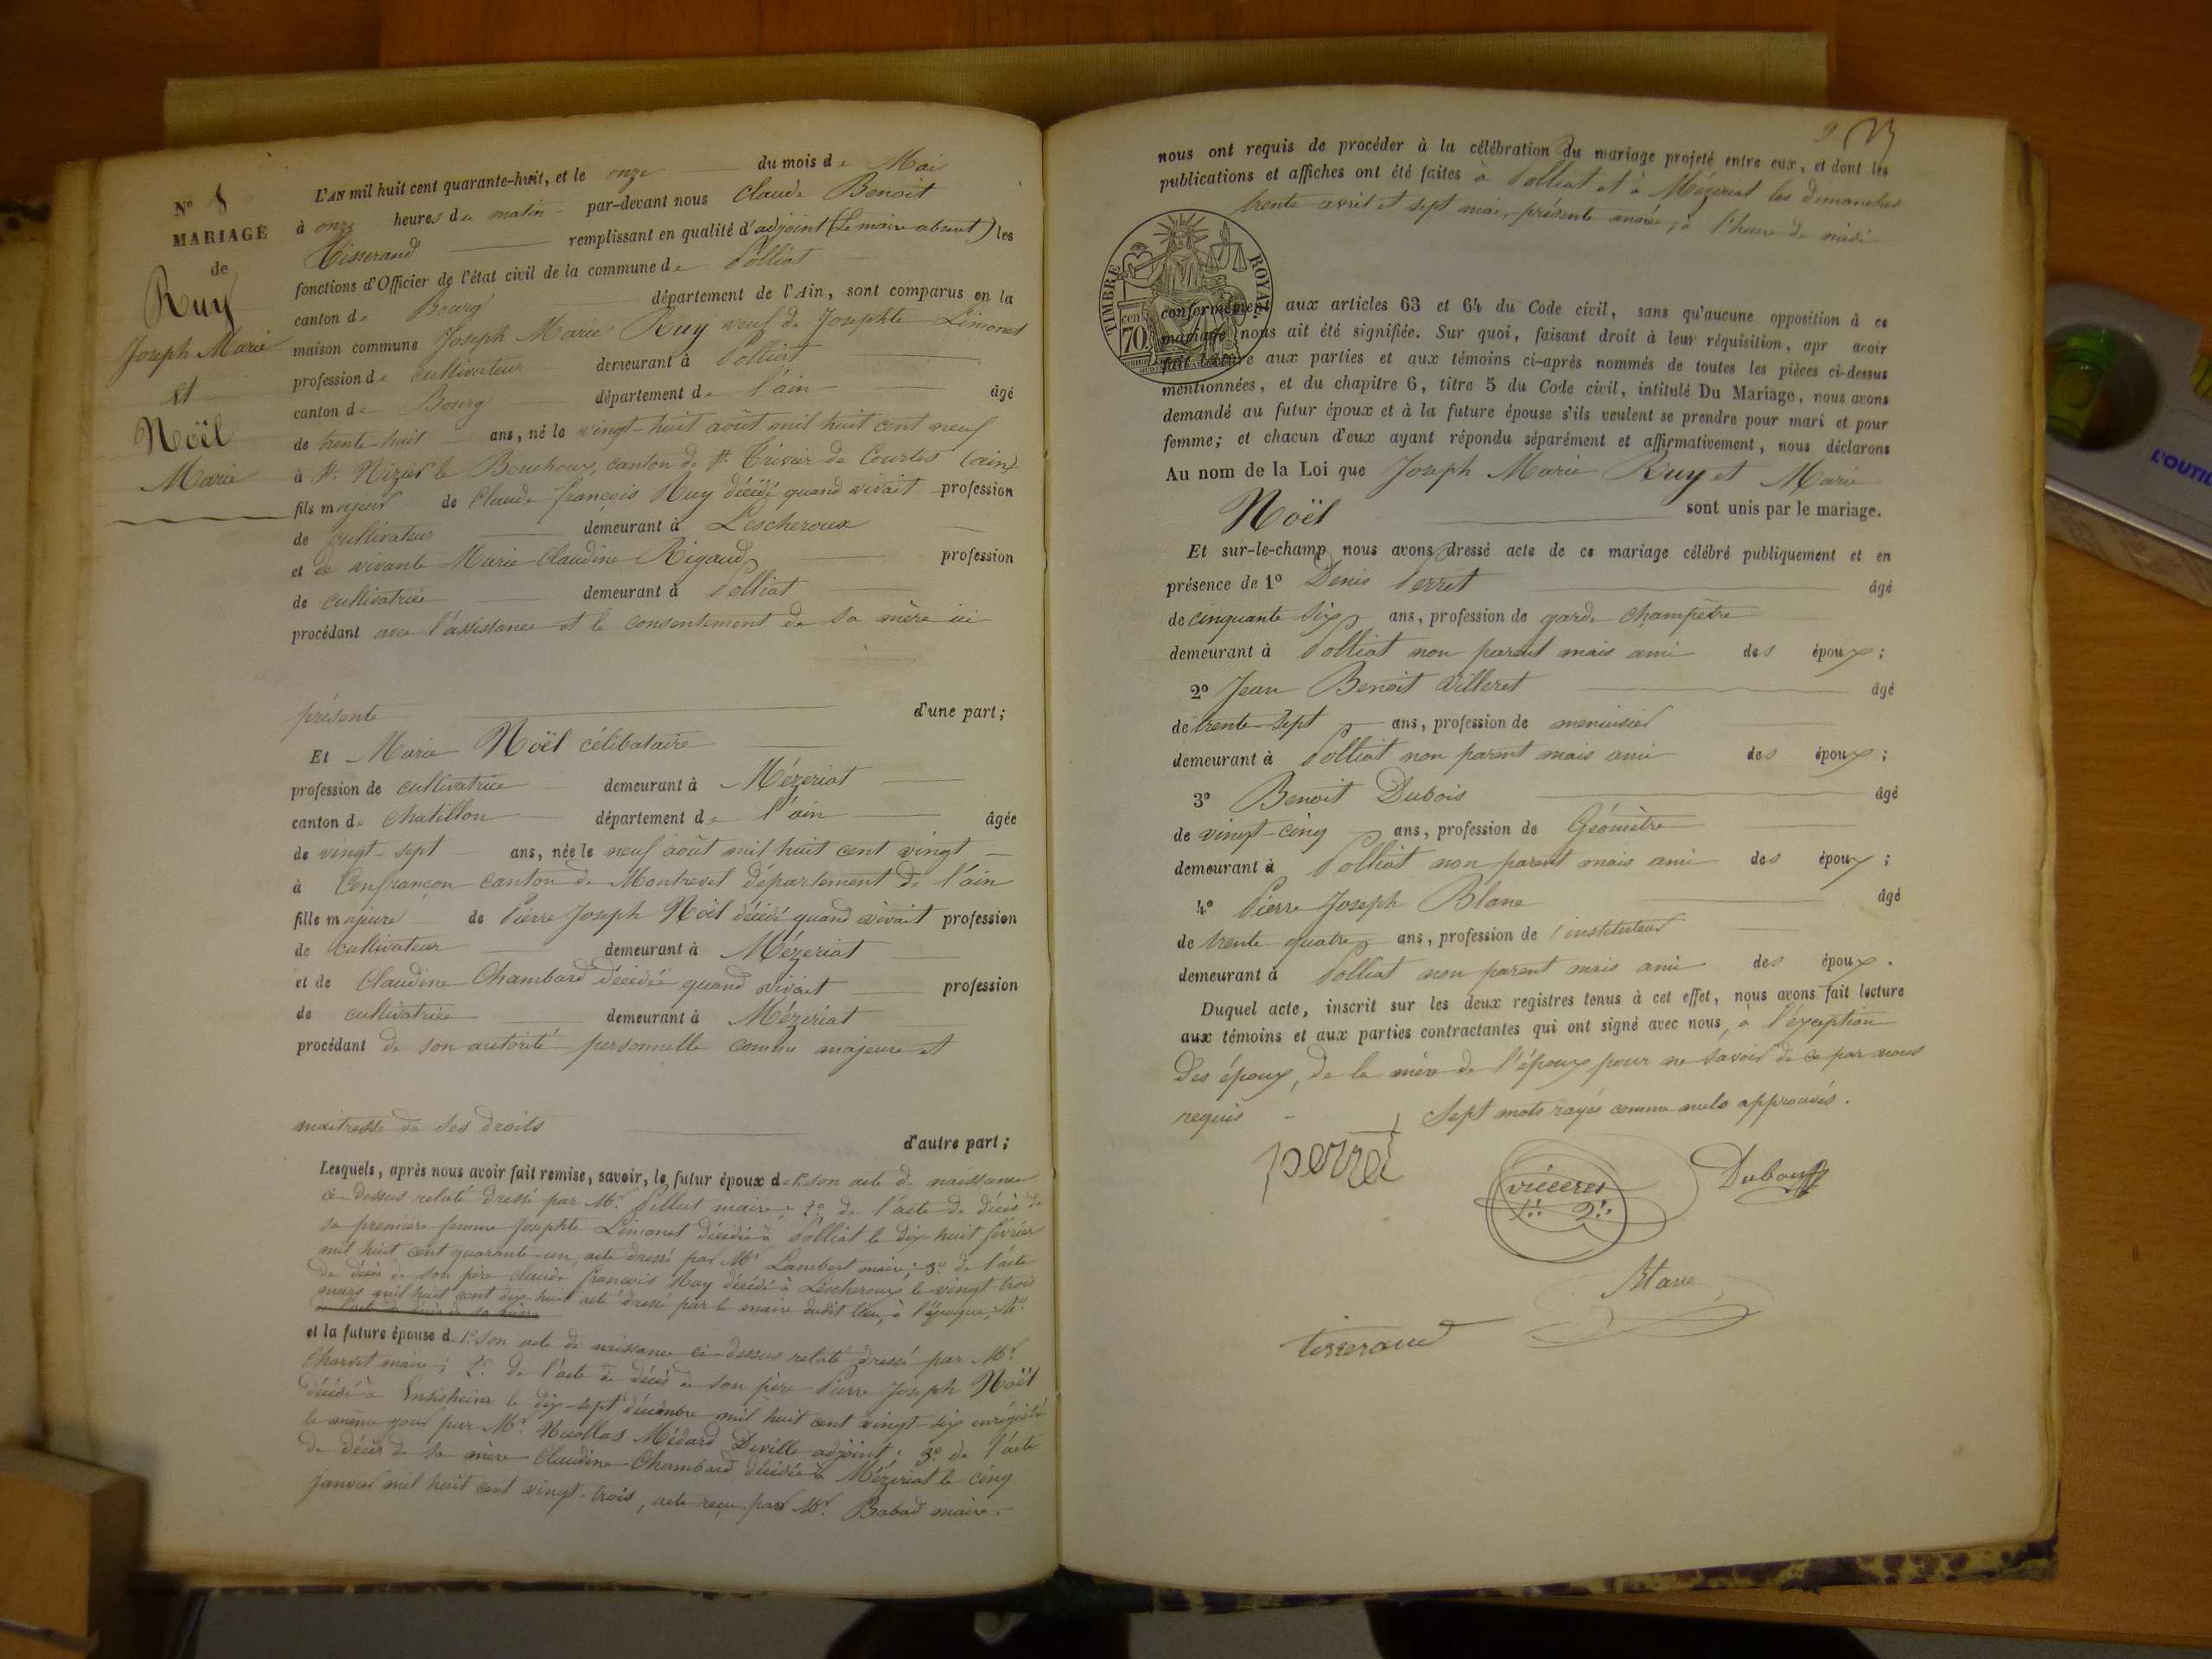 N° 8
MARIAGE
de
Ruy
Joseph Marie
et
Noël
Marie
L'AN mil huit cent quarante-huit, et le onze du mois de Mai
à onze heures du matin par-devant nous Claude Benoit
Tisserand remplissant en qualité d'adjoint (Le maire absent) les
fonctions d'Officier de l'état civil de la commune de Polliat
canton de Bourg département de l'Ain, sont comparus en la
maison commune Joseph Marie Ruy veuf de Josephte Limonet
profession de cultivateur demeurant à Polliat
canton de Bourg département de l'ain âgé
de trente-huit ans, né le vingt-huit août mil huit cent neuf
à St. Nizier le Bouchoux, canton de St. Trivier de Courtes (ain)
fils majeur de Claude françois Ruy décédé quand vivait profession
de cultivateur demeurant à Lescheroux
et de vivante Marie Claudine Rigaud profession
de cultivatrice demeurant à Polliat
procédant avec l'assistance et le consentement de sa mère ici
présente d'une part;
Et Marie Noël célibataire
profession de cultivatrice demeurant à Mézeriat
canton de Chatillon département de l'ain âgée
de vingt-sept ans, née le neuf août mil huit cent vingt
à Confrançon canton de Montrevel département de l'ain
fille majeure de Pierre Joseph Noël décédé quand vivait profession
de cultivateur demeurant à Mézeriat
et de Claudine Chambard décédée quand vivait profession
de cultivatrice demeurant à Mézeriat
procédant de son autorité personnelle comme majeure et
maitresse de ses droits d'autre part;
Lesquels, après nous avoir fait remise, savoir, le futur époux de 1° son acte de naissance
ci-dessus relaté dressé par Mr. Pillut maire; 2° de l'acte de décès de
sa première femme Josephte Limonet décédée à Polliat le dix-huit février
mil huit cent quarante-un, acte dressé par Mr Lambert maire; 3° de l'acte
de décès de son père Claude françois Ruy décédé à Lescheroux le vingt trois
mars mil huit cent dix huit acte dressé par le maire dudit lieu, à l'époque,
de l'acte de décès de sa mère
et la future épouse de 1° son acte de naissance ci-dessus relaté dressé par Mr.
Charvet maire; 2° de l'acte de décès de son père Pierre Joseph Noël
décédé à Ensisheim le dix-sept décembre mil huit cent vingt-six enregistré
le même jour par Mr. Nicollas Médard Deville adjoint; 3° de l'acte
de décès de sa mère Claudine Chambard décédée à Mézeriat le cinq
janvier mil huit cent vingt-trois, acte reçu par Mr. Babad maire.
9
nous ont requis de procéder à la célébration du mariage projeté entre eux, et dont les
publications et affiches ont été faites à Polliat et à Mézeriat les dimanches
trente avril et sept mai, présente année, à l'heure de midi
TIMBRE ROYAL
70 cen
conformément aux articles 63 et 64 du Code civil, sans qu'aucune opposition à ce
mariage nous ait été signifiée. Sur quoi, faisant droit à leur réquisition, apr avoir
fait lecture aux parties et aux témoins ci-après nommés de toutes les pièces ci-dessus
mentionnées, et du chapitre 6, titre 5 du Code civil, intitulé Du Mariage, nous avons
demandé au futur époux et à la future épouse s'ils veulent se prendre pour mari et pour
femme; et chacun d'eux ayant répondu séparément et affirmativement, nous déclarons
Au nom de la Loi que Joseph Marie Ruy et Marie
Noël sont unis par le mariage.
Et sur-le-champ nous avons dressé acte de ce mariage célébré publiquement et en
présence de 1° Denis Perret âgé
de cinquante six ans, profession de garde champêtre
demeurant à Polliat non parent mais ami des époux;
2° Jean Benoit Villeret âgé
de trente-sept ans, profession de menuisier
demeurant à Polliat non parent mais ami des époux;
3° Benoit Dubois âgé
de vingt-cinq ans, profession de Géomètre
demeurant à Polliat non parent mais ami des époux;
4° Pierre Joseph Blanc âgé
de trente quatre ans, profession de instituteur
demeurant à Polliat non parent mais ami des époux.
Duquel acte, inscrit sur les deux registres tenus à cet effet, nous avons fait lecture
aux témoins et aux parties contractantes qui ont signé avec nous, à l'exception
des époux, de la mère de l'époux pour ne savoir de ce par nous
requis Sept mots rayés comme nuls approuvés.
perret
Dubois
Blanc
tisserand
L'OUTIL